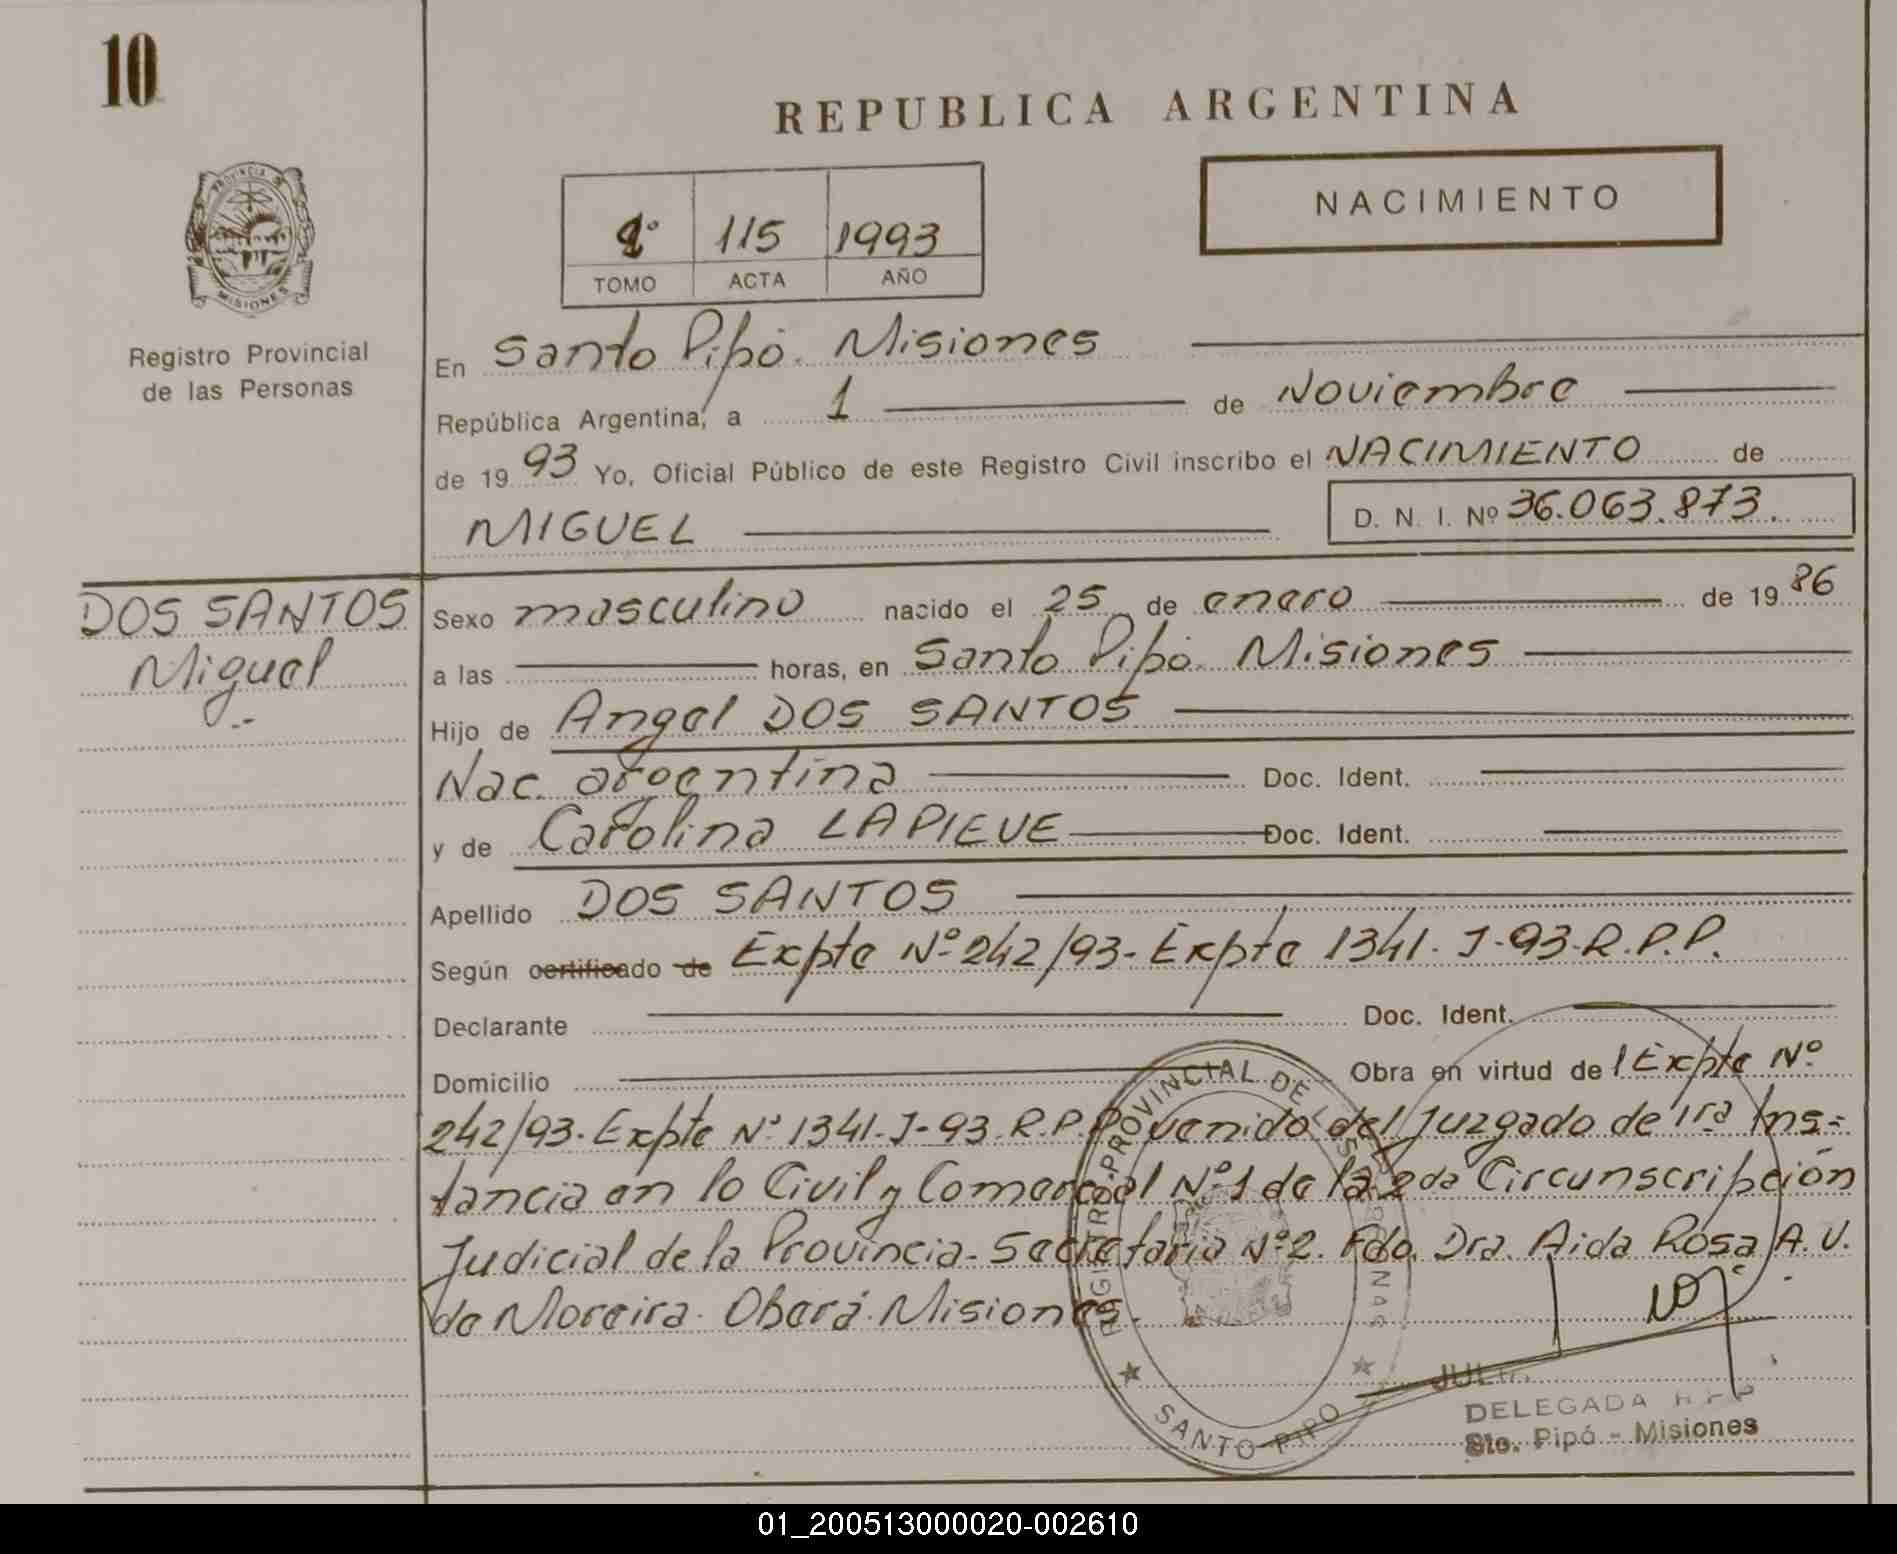 10
REPUBLICA ARGENTINA
NACIMIENTO
115 1993
TOMO ACTA AÑO
PROVINCIA DE
MISIONES
Registro Provincial
de las Personas
En Santo Pipó. Misiones
República Argentina, a 1 de Noviembre
de 19 93 Yo, Oficial Público de este Registro Civil inscribo el NACIMIENTO de
MIGUEL D. N. I. Nº 36.063.873.
DOS SANTOS
Miguel
Sexo masculino nacido el 25 de enero de 19 86
a las horas, en Santo Pipó. Misiones
Hijo de Angel DOS SANTOS
Nac. argentina Doc. Ident.
y de Carolina LAPIEVE Doc. Ident.
Apellido DOS SANTOS
Según certificado de Expte Nº 242/93- Expte 1341- J-93-R.P.P.
Declarante Doc. Ident.
Domicilio Obra en virtud de l Expte Nº
242/93. Expte Nº 1341-J-93 R.P.P venido del Juzgado de 1ra Ins-
tancia en lo Civil y Comercial Nº 1 de la 2da Circunscripción
Judicial de la Provincia- Secretaria Nº 2. Fdo. Dra. Aida Rosa A. V.
de Moreira. Oberá. Misiones.
REGISTRO PROVINCIAL DE LAS PERSONAS
SANTO PIPO
DELEGADA
Sto. Pipó - Misiones
01_200513000020-002610